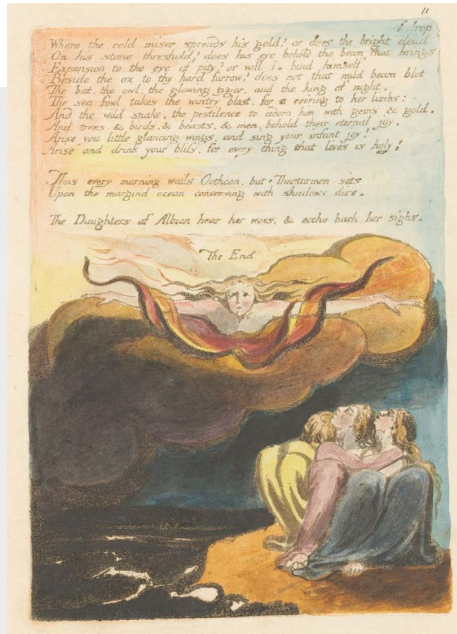 11
A drop
Where the cold miser spreads his gold! or does the bright cloud
On his stone threshold! does his eye behold the beam that brings
Expansion to the eye of pity? or will he bind himself
Beside the ox to thy hard furrow? does not that mild beam blot
The bat, the owl, the glowing tyger, and the king of night.
The sea fowl takes the wintry blast, for a cov'ring to her limbs:
And the wild snake, the pestilence to adorn him with gems & gold.
And trees, & birds, & beasts, & men, behold their eternal joy.
Arise you little glancing wings, and sing your infant joy!
Arise and drink your bliss, for every thing that lives is holy!
Thus every morning wails Oothoon, but Theotormon sits
Upon the margind ocean conversing with shadows dire.
The Daughters of Albion hear her woes, & eccho back her sighs.
The End